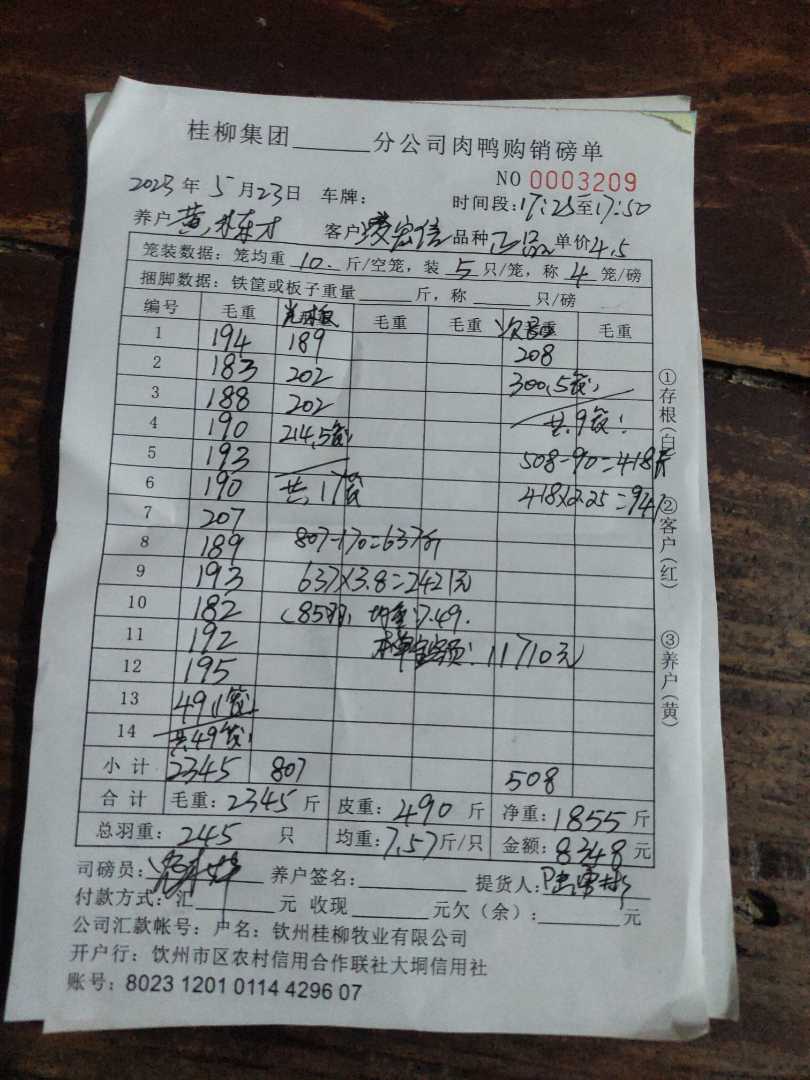 桂柳集团______分公司肉鸭购销磅单
NO 0003209
2023年5月23日 车牌: 时间段:17:25至17:50
养户 黄 才 客户 凌宏信 品种 正品 单价4.5
笼装数据: 笼均重 10. 斤/空笼, 装 5 只/笼, 称 4 笼/磅
捆脚数据: 铁筐或板子重量______斤, 称______只/磅
编号 毛重 毛重 毛重 毛重
1 194 189 208
2 183 202 300,5笼,
3 188 202 共9笼!
4 190 214,5笼, 508-90=418斤
5 193
6 190 共17笼 418×2.25=941
7 207
8 189 807-170=637斤
9 193 637×3.8=2421元
10 182 (85羽, 均重:7.49.
11 192 11710元
12 195
13 49,1笼,
14 共49笼!
小计 2345 807 508
合计 毛重: 2345 斤 皮重: 490 斤 净重: 1855 斤
总羽重: 245 只 均重: 7.57 斤/只 金额: 8348 元
司磅员: 养户签名: 提货人:
付款方式: 汇______元 收现______元欠(余): ______元
公司汇款帐号: 户名: 钦州桂柳牧业有限公司
开户行: 钦州市区农村信用合作联社大垌信用社
账号: 8023 1201 0114 4296 07
①存根(白)
②客户(红)
③养户(黄)